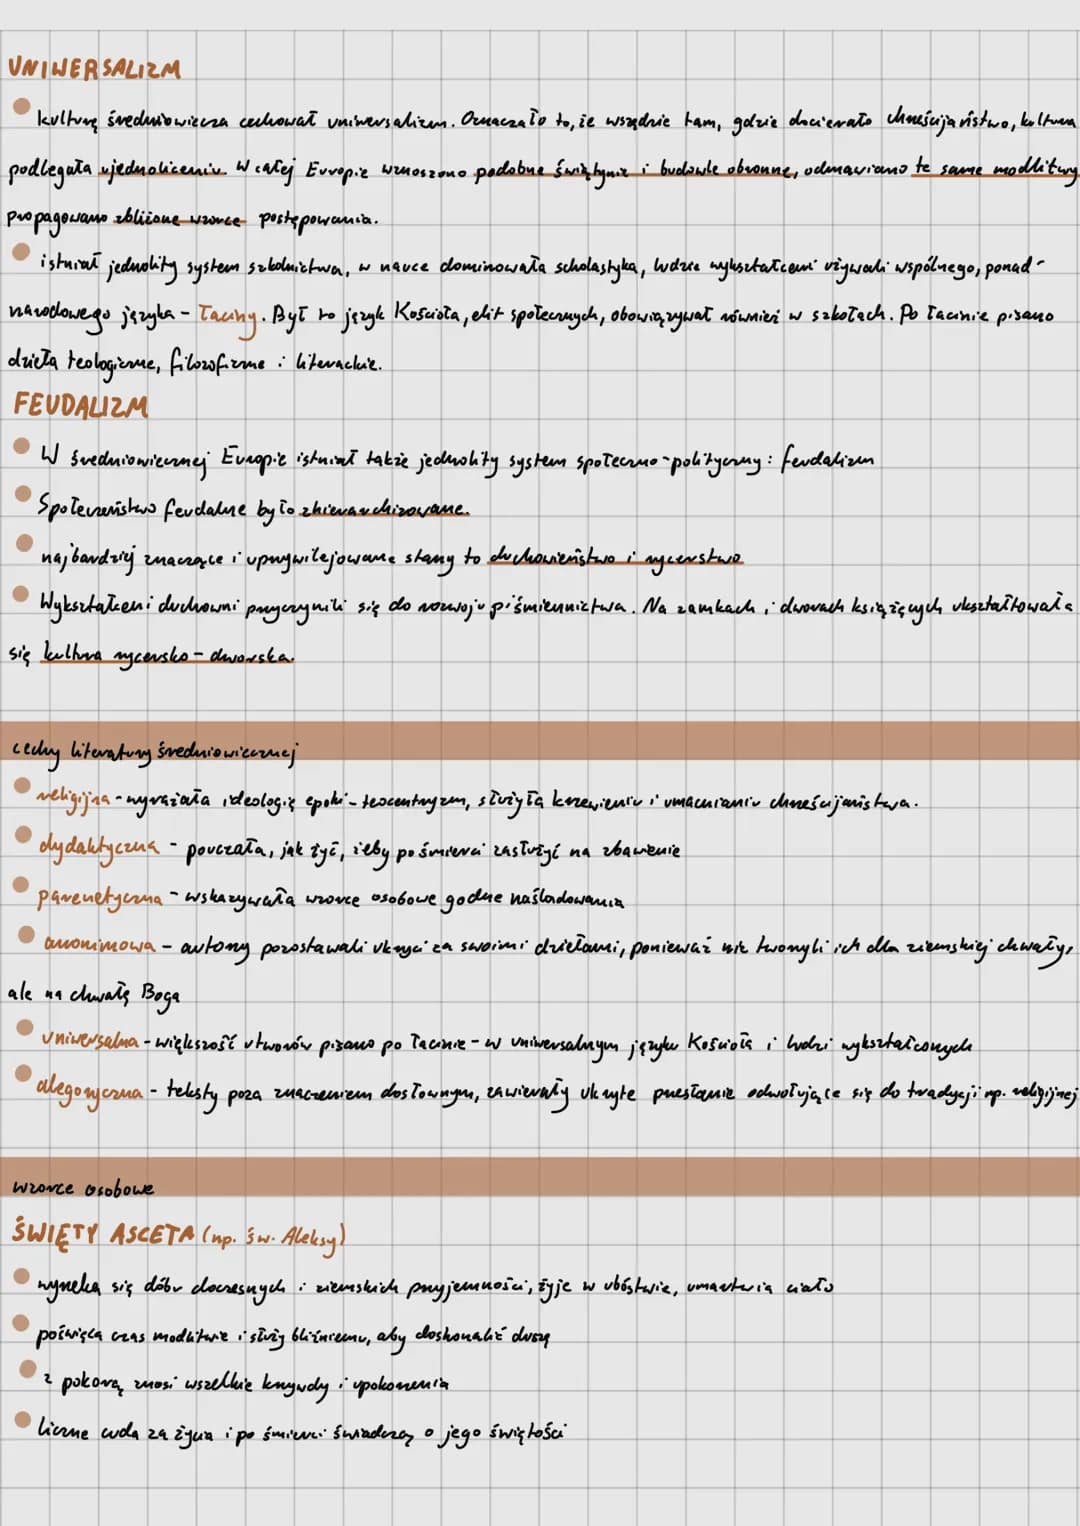 UNIWERSALIZM
kulturę średniowiecza cechował uniwersalizm. Oznaczało to, że wszędzie tam, gdzie docierało chrześcijaństwo, kultura
podlegała ujednoliceniu. W całej Europie wznoszono podobne świątynie i budowle obronne, odmawiano te same modlitwy
propagowano zbliżone wzorce postępowania.
istniał jednolity system szkolnictwa, w nauce dominowała scholastyka, ludzie wykształceni używali wspólnego, ponad-
narodowego języka - łaciny. Był to język Kościoła, elit społecznych, obowiązywał również w szkołach. Po łacinie pisano
dzieła teologiczne, filozoficzne i literackie.
FEUDALIZM
W średniowiecznej Europie istniał także jednolity system społeczno-polityczny: feudalizm
Społeczeństwo feudalne było zhierarchizowane.
najbardziej znaczące i uprzywilejowane stany to duchowieństwo i rycerstwo
Wykształceni duchowni przyczynili się do rozwoju piśmiennictwa. Na zamkach i dworach książęcych ukształtowała
się kultura rycersko-dworska.
cechy literatury średniowiecznej
religijna - wyrażała ideologię epoki - teocentryzm, służyła krzewieniu i umacnianiu chrześcijaństwa.
dydaktyczna - pouczała, jak żyć, żeby po śmierci zasłużyć na zbawienie
parenetyczna - wskazywała wzorce osobowe godne naśladowania
anonimowa - autorzy pozostawali ukryci za swoimi dziełami, ponieważ nie tworzyli ich dla ziemskiej chwały,
ale na chwałę Boga
uniwersalna - większość utworów pisano po łacinie - w uniwersalnym języku Kościoła i ludzi wykształconych
alegoryczna - teksty poza znaczeniem dosłownym, zawierały ukryte przesłanie odwołujące się do tradycji np. religijnej
wzorce osobowe
ŚWIĘTY ASCETA (np. św. Aleksy)
wyrzeka się dóbr doczesnych i ziemskich przyjemności, żyje w ubóstwie, umartwia ciało
poświęca czas modlitwie i służy bliźniemu, aby doskonalić duszę
z pokorą znosi wszelkie krzywdy i upokorzenia
liczne cuda za życia i po śmierci świadczą o jego świętości